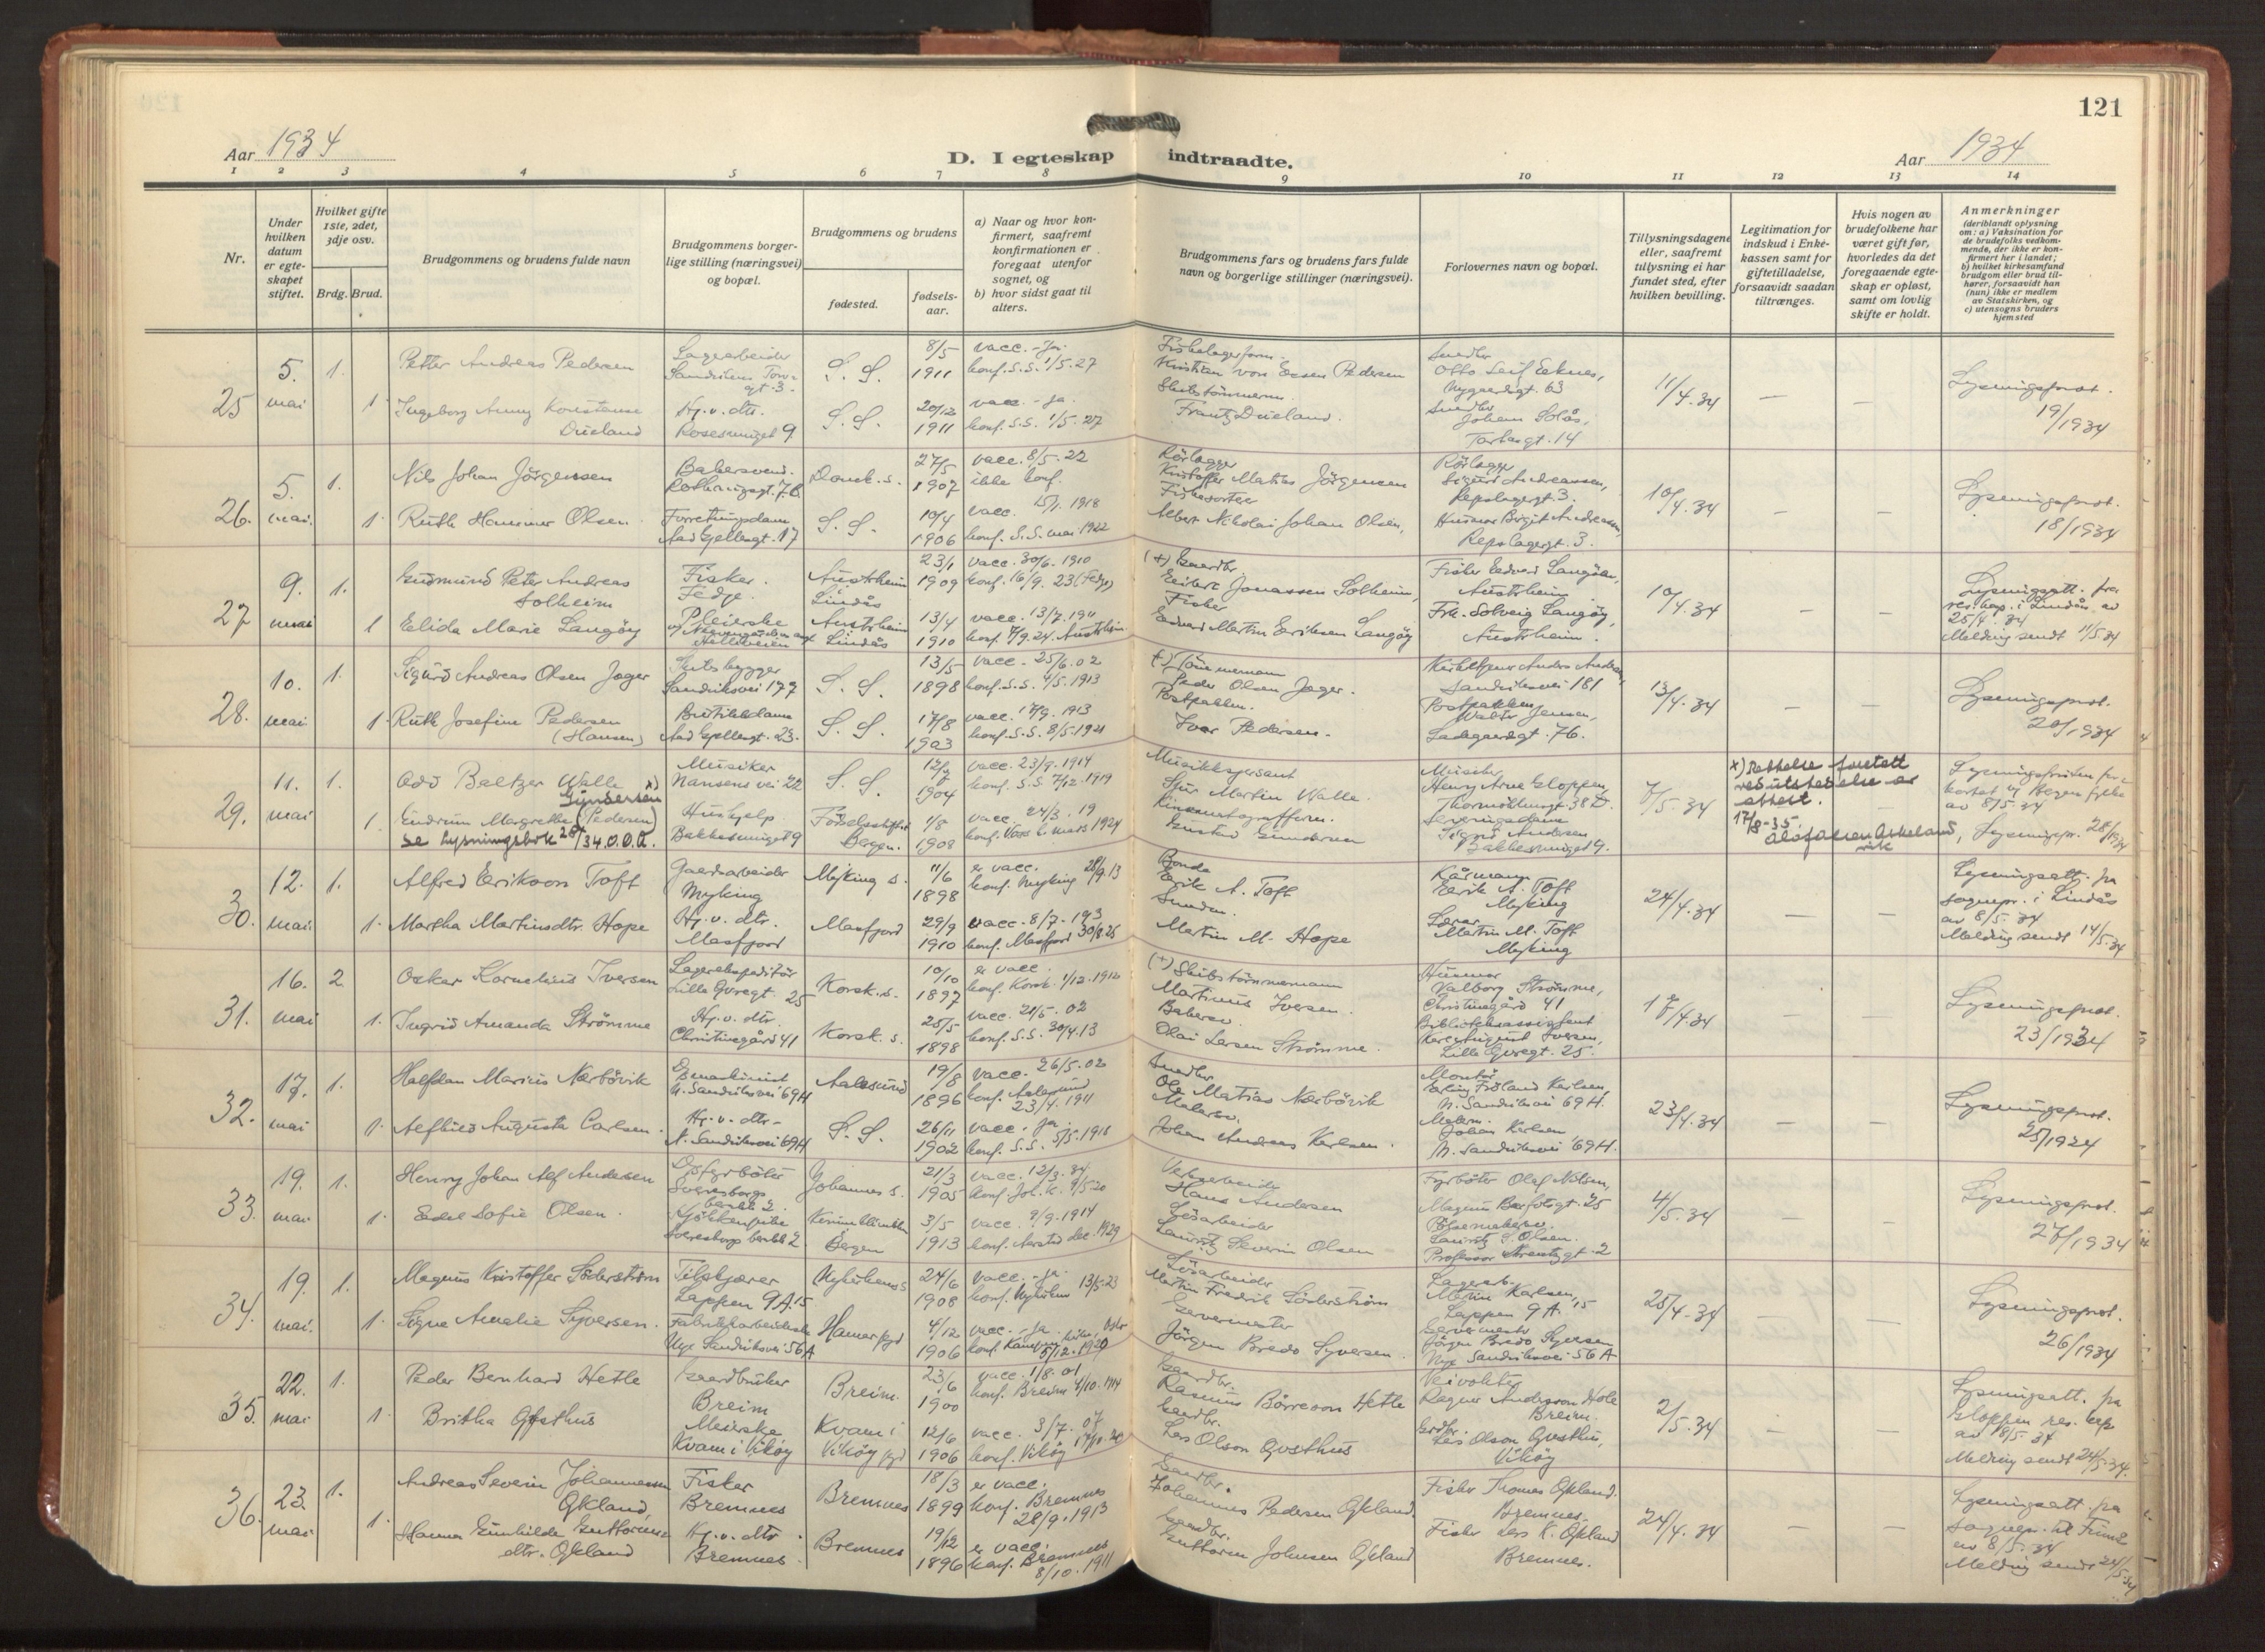 121
Aar 1934
D. I egteskap indtraadte.
Aar 1934
1 2 3 4 5 6 7 8 9 10 11 12 13 14
Nr.
Under hvilken datum er egteskapet stiftet.
Hvilket gifte 1ste, 2det, 3dje osv.
Brdg. Brud.
Brudgommens og brudens fulde navn
Brudgommens borgerlige stilling (næringsvei) og bopæl.
Brudgommens og brudens
fødested.
fødselsaar.
a) Naar og hvor konfirmert, saafremt konfirmationen er foregaat utenfor sognet, og
b) hvor sidst gaat til alters.
Brudgommens fars og brudens fars fulde navn og borgerlige stillinger (næringsvei).
Forlovernes navn og bopæl.
Tillysningsdagene eller, saafremt tillysning ei har fundet sted, efter hvilken bevilling.
Legitimation for indskud i Enkekassen samt for giftetilladelse, forsaavidt saadan tiltrænges.
Hvis nogen av brudefolkene har været gift før, hvorledes da det foregaaende egteskap er opløst, samt om lovlig skifte er holdt.
Anmerkninger
(deriblandt oplysning om: a) Vaksination for de brudefolks vedkommende, der ikke er konfirmert her i landet;
b) hvilket kirkesamfund brudgom eller brud tilhører, forsaavidt han (hun) ikke er medlem av Statskirken, og
c) utensogns bruders hjemsted
25 5. mai 1.
Petter Andreas Pedersen
Lagerarbeider
S. S.
8/5 1911
vacc. - Ja.
konf. S.S. 1/5. 27
Kristian von Essen Pedersen
Otto Leif Eknes,
Nygaardsgt. 63
11/4.34
Lysningsprot.
19/1934
1 Ingeborg Anny Konstanse
Hj. v. dtr.
Rosesmuget 9
S. S.
20/12 1911
vacc. - ja.
konf. S.S. 1/5. 27
Skibstømmerm.
Snedker
26. 5. mai. 1.
Nils Johan Jörgensen
Bakersvend.
Domk. s.
27/5 1907
vacc. 8/5. 22
ikke konf.
Rörlegger
Kristoffer Matias Jörgensen
Rörlegger
Sigurd Andreassen,
Repslagergt. 3.
10/4.34
Lysningsprot.
18/1934
1. Ruth Hammer Olsen
S. S.
10/4 1906
vacc. 15/1. 1918
konf. S.S. mai 1922
Albert Nikolai Johan Olsen,
Husmor Birgit Andreassen,
Repslagergt. 3.
27 9. mai 1.
Gudmund Peter Andreas
Solheim
Fisker.
Fedje.
Austrheim
Lindås
23/1 1909
vacc. 30/6. 1910
konf. 16/9. 23 (Fedje)
(+) Gaardbr.
Jonassen Solheim,
Fisker
Fisker Edvard Langöen,
Austrheim
10/4.34
Lysningsatt. fra
res. kap. i Lindås av
25/4. 34
Melding sendt 11/5 34
1 Elida Marie Langöy
Pleierske
Austrheim
Lindås
13/4 1910
vacc. 13/7. 1911
Edvard Martin Eriksen Langöy
Frk. Solveig Langöy,
Austrheim.
28. 10. mai 1.
Sigurd Andreas Olsen Jæger
Skibsbygger
Sandviksvei 177
S. S.
13/5 1898
vacc. 25/6. 02
konf. S.S. 4/5. 1913
Tömmermann
Peder Olsen Jæger.
Sandviksvei 181
13/4.34
Lysningsprot.
20/1934
1. Ruth Josefine Pedersen
(Hansen)
Butikkdame
S. S.
17/8 1903
vacc. 17/9. 1913
konf. S.S. 8/5. 1921
Ivar Pedersen.
Walter Jensen,
Ladegaardsgt. 76.
29. 11. mai 1.
Odd Baltzer Walle
Musiker
Nansens vei 22
S. S.
1904
vacc. 23/9. 1914
konf. S.S. 7/12. 1919
Musikksersjant
Martin Walle.
Musiker
Henry Arne Gloppen,
7/5. 34
x) Rettelse foretatt
ved utstedelse av
attest.
17/8-35.
av 8/5. 34
1. Gudrun Margrethe (Pedersen) x)
Gundersen
se Lysningsbok 28/34. O.O.A.
Hushjelp
Bakkesmuget 9
Födselsstiftet
Bergen.
1/8 1908
vacc. 24/3. 19
Gustav Gundersen
Sigrid Andersen
Bakkesmuget 9.
30. 12. mai 1.
Alfred Erikson Toft
Gaardsarbeider
Myking
Myking s.
11/6 1898
er vacc.
konf. Myking 28/9. 13
Bonde
Erik A. Toft
Kårmann
Erik A. Toft
Myking
24/4.34
Lysningsatt. fra
sognepr. i Lindås
av 8/5. 34
Melding sendt 14/5.34
1. Martha Martinsdtr. Hope
Hj. v. dtr.
Masfjord
Masfjord
29/9 1910
konf. Masfjord 30/8.25
Martin M. Hope
Lærer
Martin M. Toft
Myking
31. 16. mai 2
Oskar Kornelius Iversen
Lagerekspeditör
Lille Övregt. 25
Korsk. s.
10/10 1897
er vacc.
konf. Korsk. 1/12. 1912
(+) Skibstømmermann
Martinus Iversen.
Husmor
Valborg Strømme,
Christinegård 41
17/4.34
Lysningsprot.
23/1934
1. Ingrid Amanda Strømme
Hj. v. dtr.
Christinegård 41
Korsk. s.
25/5 1898
vacc. 21/5. 02
konf. S.S. 30/4.13
Olai Larsen Strømme.
Bibliotekassistent
Kåre August Iversen,
Lille Övregt. 25.
32. 17. mai 1.
Halfdan Marius Nærbövik
N. Sandviksvei 69 H
Aalesund
19/8 1896
vacc. 26/5. 02
konf. Aalesund
23/4. 1911
Snedker
Ole Matias Nærbövik
Montör
Erling Fröland Karlsen,
N. Sandviksvei 69 H.
23/4.34
Lysningsprot.
25/1934
1. Alfhild Augusta Carlsen.
Hj. v. dtr.
N. Sandviksvei 69H
S. S.
26/11 1902
vacc. ja.
konf. S.S. 5/5. 1918
Johan Andreas Karlsen.
Johan Karlsen
N. Sandviksvei 69 H.
33. 19. mai 1.
Henry Johan Alf Andersen
Johannes s.
21/3 1905
vacc. 12/3. 34
Hans Andersen
Fyrböter Olaf Nilsen,
Magnus Barfotsgt. 25
4/5.34
Lysningsprot.
27/1934
1. Edel Sofie Olsen.
Bergen
3/5 1913
vacc. 9/9. 1914
konf. Aarstad des. 1929
Lösarbeider
Lauritz Severin Olsen
Lauritz S. Olsen.
34. 19. mai. 1.
Magnus Kristoffer Söderström
Lappen 9A.15
24/6 1908
vacc. - ja.
13/5.23
Lösarbeider
Martin Fredrik Söderström
Martin Karlsen,
Lappen 9 A. 15
25/4.34
Lysningsprot.
26/1934
1. Signe Amalie Syversen.
Fabrikkarbeiderske
Nye Sandviksvei 56 A
Hamar
4/12 1906
vacc. - ja.
Garvermester
Jörgen Bredo Syversen.
Garvermester
Jörgen Bredo Syversen
Nye Sandviksvei 56 A
35. 22. mai 1.
Peder Bernhard Hetle
Gaardbruker
Breim
Breim.
23/6 1900
vacc. 1/8. 01
konf. Breim 4/10. 1914
Gaardbr.
Rasmus Börreson Hetle
Veivokter
Ragnar Andersson Hole
Breim.
2/5.34
Lysningsatt. fra
Gloppen res. kap
av 18/5. 34
Melding sendt 24/5.34.
1. Britha Östhus
Meierske
Kvam i Viköy
Kvam i
Viköy pgd
12/6 1906
vacc. 3/7. 07
Gardbr.
Lars Olson
Gardbr.
Viköy
36. 23. mai 1.
Andreas Severin Johannessen
Ökland
Fisker
Bremnes
Bremnes
18/3 1899
er vacc.
konf. Bremnes
28/9. 1913
Gaardbr.
Johannes Pedersen Ökland.
Fisker Thomas Ökland.
Bremnes.
24/4.34
Lysningsatt. fra
sognepr. til Finnås
av 8/5. 34
Melding sendt 24/5.34
1. Hanna Gunhilde Guttormsdtr. Ökland
Hj. v. dtr.
Bremnes.
Bremnes
19/12 1896
er vacc.
konf. Bremnes
8/10. 1911
Gaardbr.
Guttorm Johnsen Ökland
Fisker Lars K. Ökland
Bremnes.